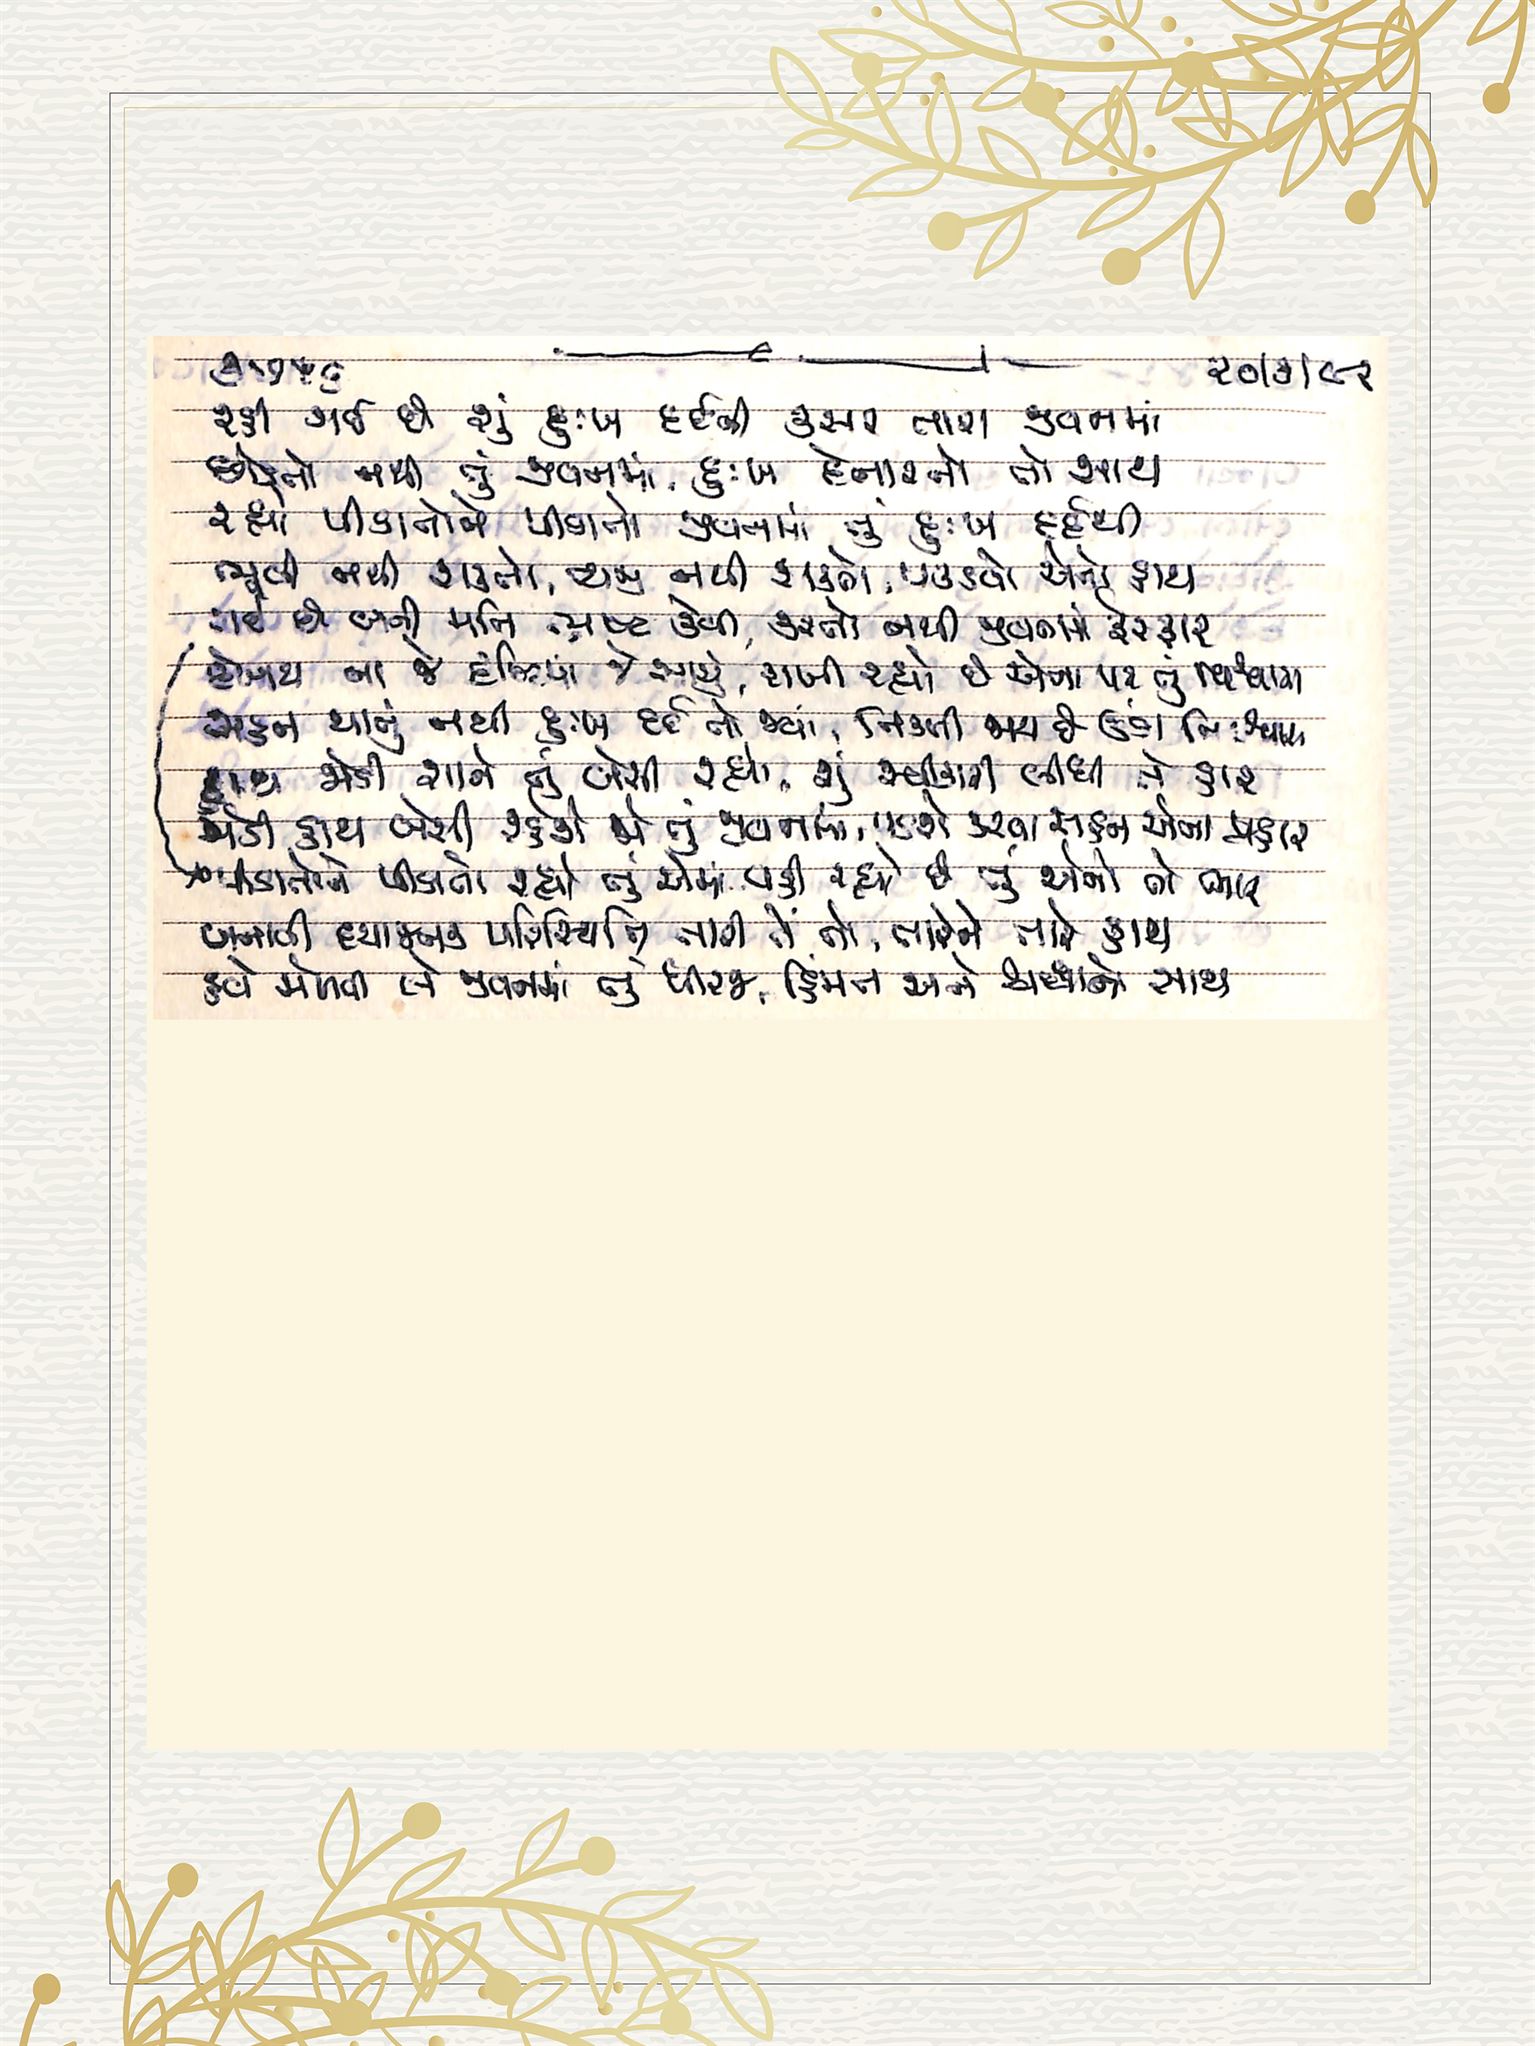 ૨૦/૭/૯૨
રહી ગઈ છે શું દુઃખ દર્દની કસર તારા જીવનમાં
છોડતો નથી તું જીવનમાં, દુઃખ દેનારનો તો સાથ
રહ્યો પીડાતોને પીડાતો જીવનમાં તું દુઃખ દર્દથી
ભૂલી નથી શક્તો, ત્યજી નથી શક્તો, પકડવો એનો હાથ
ગઈ છે બની મતિ ભ્રષ્ટ કેવી, કરતો નથી જીવનમાં ફેરફાર
સોબત ના જે દીધાં જે આવું, રાખી રહ્યો છે એના પર તું વિશ્વાસ
સહન થાતું નથી દુઃખ દર્દ તો જ્યાં, નિકળી જાય છે ઉંડા નિઃશ્વાસ
હાથ જોડી શાને તું બેસી રહ્યો, શું સ્વીકારી લીધી તે હાર
જોડી હાથ બેસી રહેશે જો તું જીવનમાં, પડશે કરવા સહન એના પ્રહાર
પીડાતોને પીડાતો રહ્યો તું એમાં પડી રહ્યો છે તું એનો તો માર
બનાવી દયાજનક પરિસ્થિતિ તારી તેં તો, તારેને તારે હાથ
હવે મેળવી લે જીવનમાં તું ધીરજ, હિંમત અને શ્રધ્ધાનો સાથ